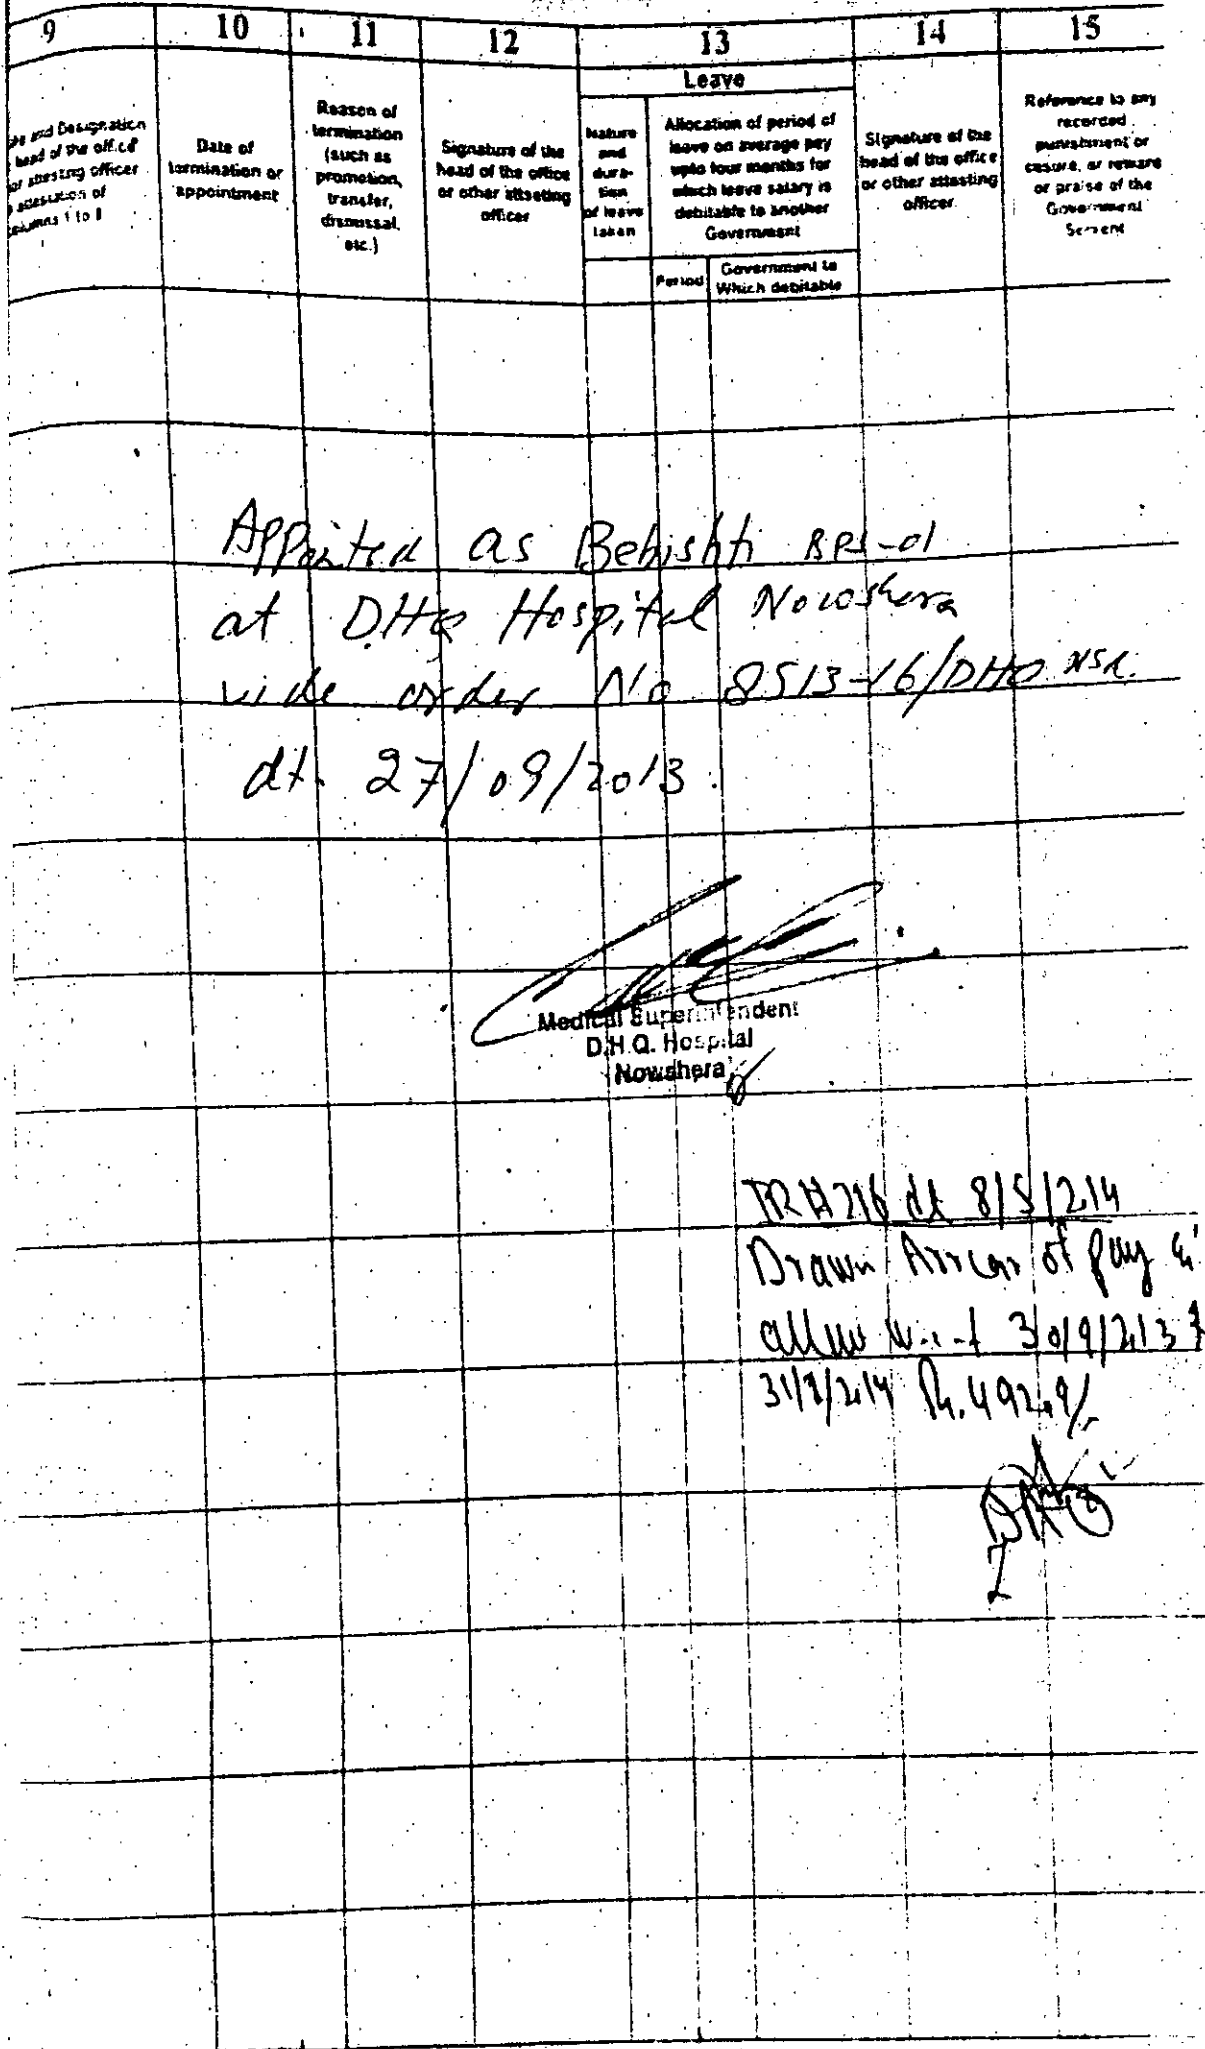 9 10 11 12 13 14 15
and Designation
head of the office
or attesting officer
attestation of
columns 1 to 8
Date of
termination or
appointment
Reason of
termination
(such as
promotion,
transfer,
dismussal,
etc.)
Signature of the
head of the office
or other attseting
officer
Leave
Nature
and
dura-
tion
of leave
taken
Allocation of period of
leave on average pay
upto four months for
which leave salary is
debitable to another
Government
Period
Government to
Which debitable
Signature of the
head of the office
or other attesting
officer
Reference to any
recorded
punishment or
casure, or reware
or praise of the
Government
Servent
Appointed as Behishti BPS-01
at DHQ Hospital Nowshera
vide order No 8513-16/DHO NSR.
dt. 27/09/2013.
Medical Superintendent
D.H.Q. Hospital
Nowshera
TR# 216 dt 8/5/214
Drawn Arrear of pay &
allow w.e.f 30/9/213
Rs. 49209/-